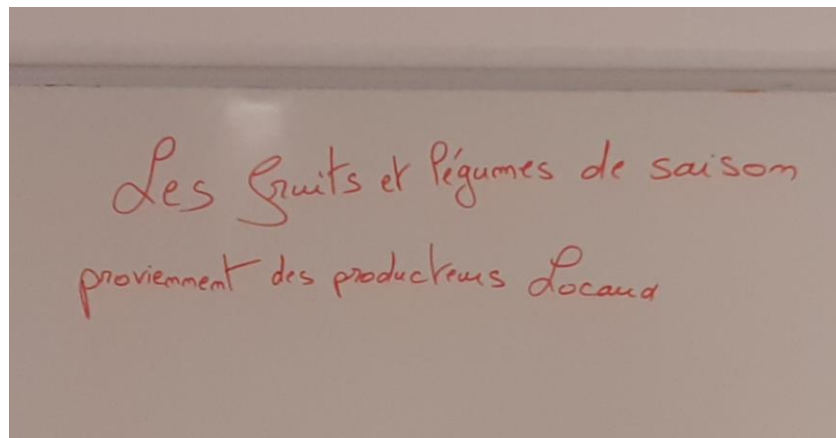 Les fruits et légumes de saison
proviennent des producteurs Locaux